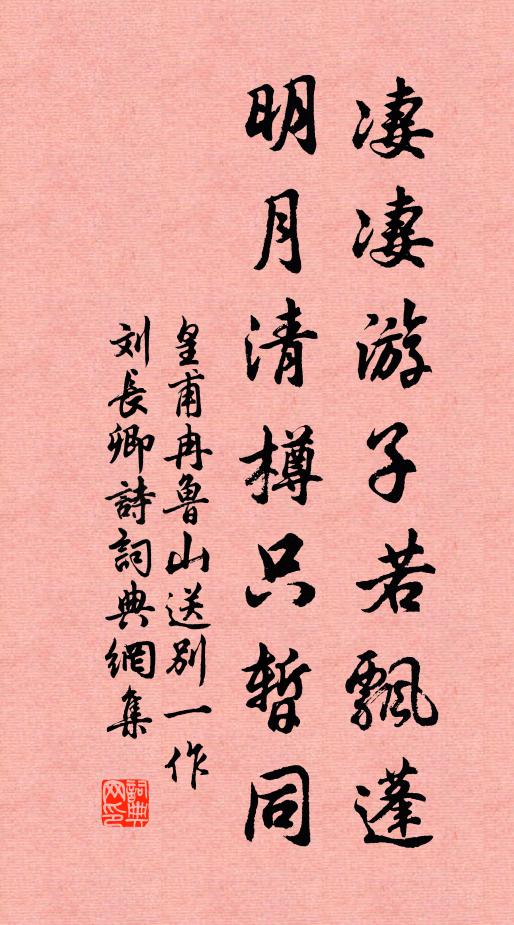 凄凄游子若飄蓬
明月清樽只暫同
皇甫冉魯山送別一作
刘長卿詩詞典網集
詞典網印